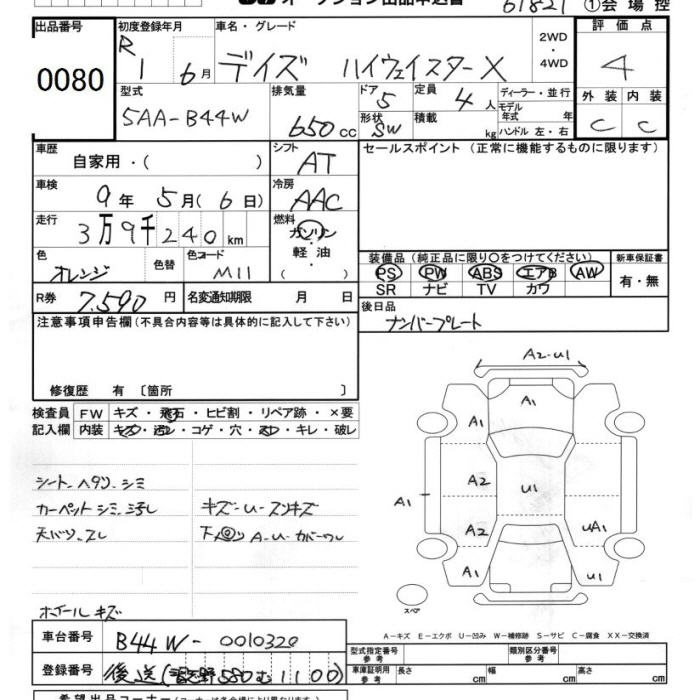 オークション出品申込書 61821 ①会場控
出品番号 初度登録年月 車名・グレード 2WD・4WD 評価点
0080 R1 6月 デイズ ハイウェイスターX 4
型式 排気量 ドア 5 定員 4人 ディーラー・並行 外装 内装
5AA-B44W 650cc 形状 SW 積載 kg モデル年式 年 ハンドル 左・右 C C
車歴 自家用・( ) シフト AT セールスポイント (正常に機能するものに限ります)
車検 9年 5月(6日) 冷房 AAC
走行 3万9千240km 燃料 ガソリン・軽油・( )
色 オレンジ 色替 色コード M11
装備品(純正品に限り○をつけてください) 新車保証書
PS PW ABS エアB AW 有・無
SR ナビ TV カワ
R券 7,590円 名変通知期限 月 日
後日品 ナンバープレート
注意事項申告欄(不具合内容等は具体的に記入して下さい)
修復歴 有〔箇所 〕
検査員 FW キズ・飛石・ヒビ割・リペア跡・×要
記入欄 内装 キズ・汚レ・コゲ・穴・スレ・キレ・破レ
シート ヘタリ シミ
カーペット シミ 汚レ キズ-U-スリキズ
天バリ スレ A-U-カバーワレ
ホイールキズ
A2-U1
A1
A1
A2
A1 U1
A2 UA1
A1 U1
スペア
A-キズ E-エクボ U-凹み W-補修跡 S-サビ C-腐食 XX-交換済
車台番号 B44W-0010320
登録番号 後送 580む1100
型式指定番号 参考 類別区分番号 参考
車庫証明用 参考 長さ cm 幅 cm 高さ cm
希望出品コーナー